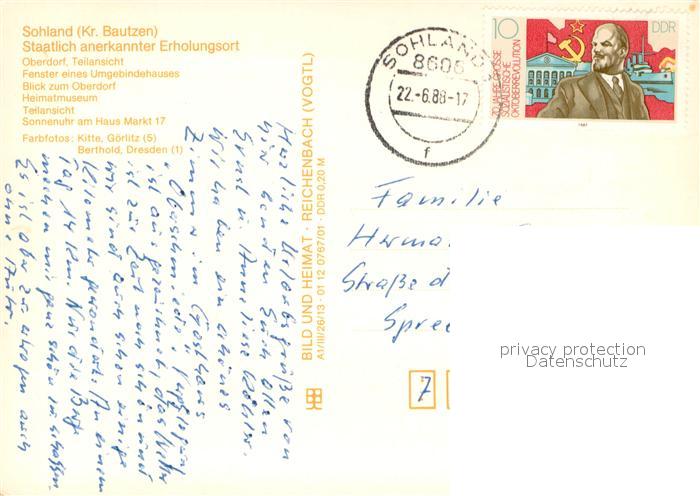 Sohland (Kr. Bautzen)
Staatlich anerkannter Erholungsort
Oberdorf, Teilansicht
Fenster eines Umgebindehauses
Blick zum Oberdorf
Heimatmuseum
Teilansicht
Sonnenuhr am Haus Markt 17
Farbfotos: Kitte, Görlitz (5)
Berthold, Dresden (1)
Herzliche Urlaubsgrüße von
hier senden Euch Allen
Ernst u. Anneliese Köhler.
Wir haben ein schönes
Zimmer im Gasthaus
ist ausgezeichnet, das Wetter
ist zur Zeit noch schön und
wir sind auch schon einige
Kilometer gewandert. An einem
Tag 14 Km. Nur die Berge
machen mir ganz schön zu schaffen
Es ist aber zu ertragen auch
ohne
BILD UND HEIMAT · REICHENBACH (VOGTL)
A1/III/26/13 · 01 12 0767/01 · DDR 0,20 M
SOHLAND
8606
22.-6.88-17
f
10
DDR
70 JAHRE GROSSE
SOZIALISTISCHE
OKTOBERREVOLUTION
1987
Familie
Herma
Straße d
Spree
7
privacy protection
Datenschutz